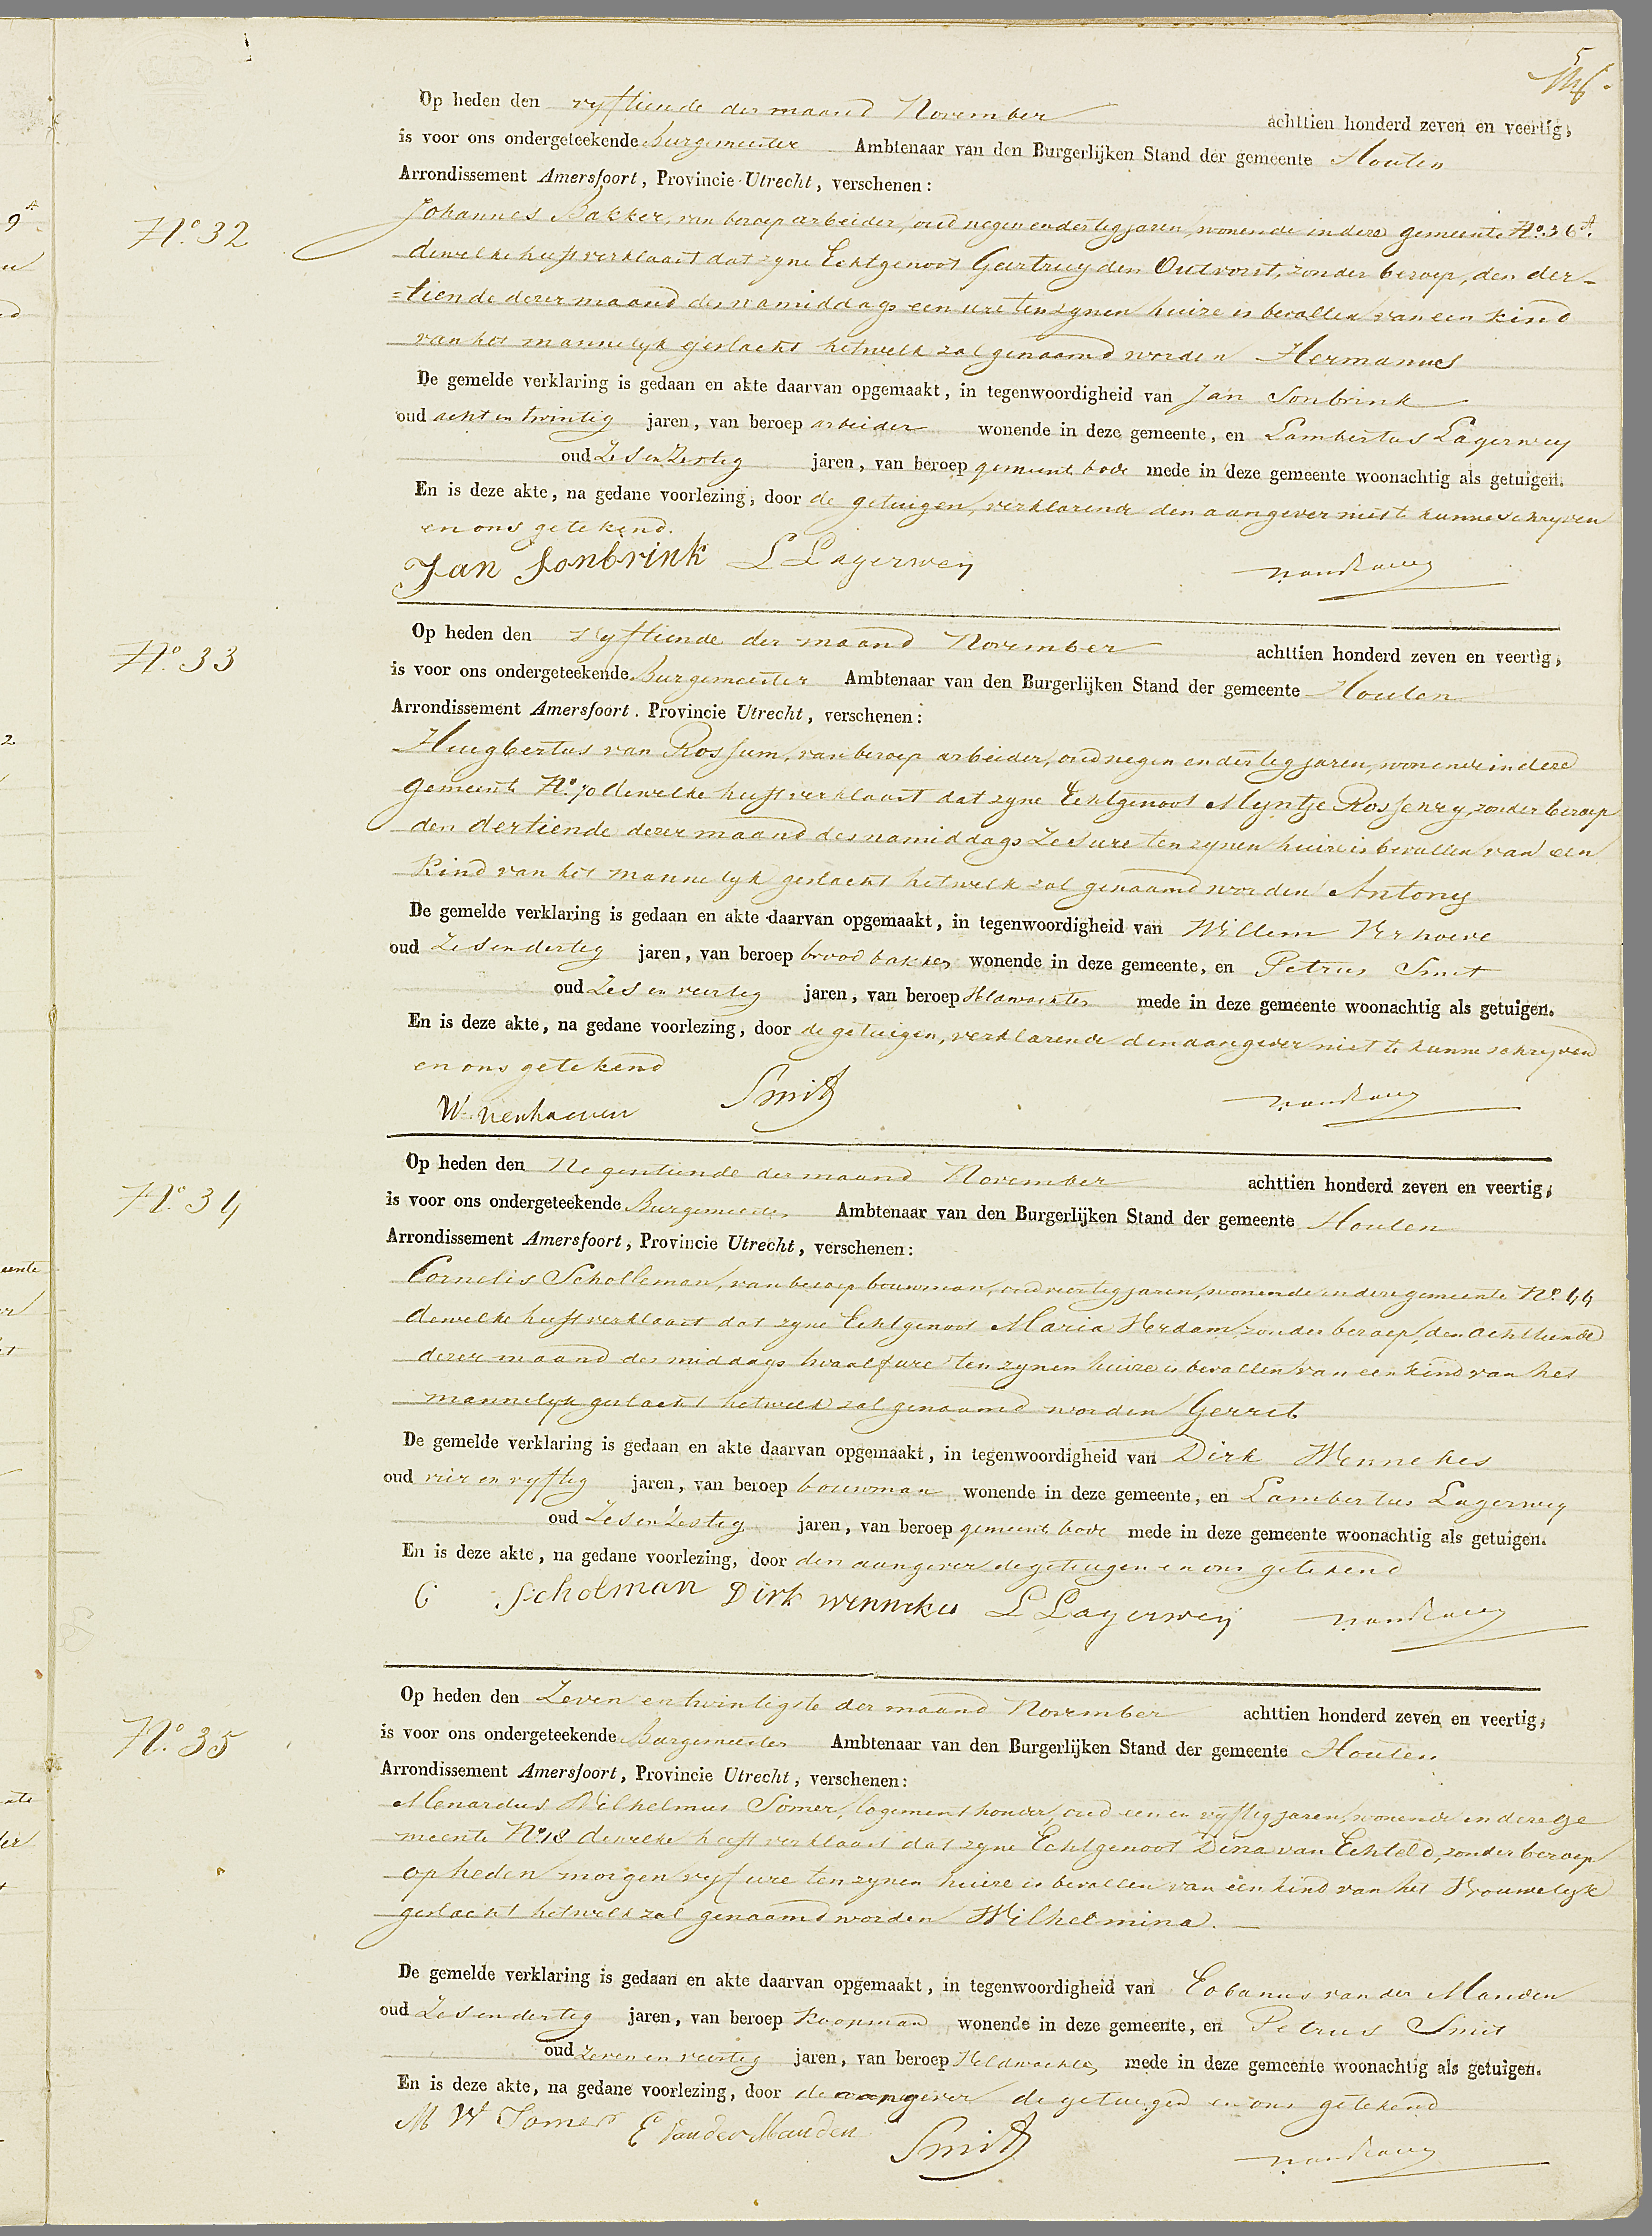 Op heden den vyftiende der maand November achttien honderd zeven en veertig,
is voor ons ondergeteekende Burgemeester Ambtenaar van den Burgerlijken Stand der gemeente Houten
Arrondissement Amersfoort, Provincie Utrecht, verschenen:
No. 32
Johannes Bakker, van beroep arbeider, oud negen en dertig jaren, wonende in deze gemeente No. 36 A.
dewelke heeft verklaart dat zyne Echtgenoot Geertruy den Outvorst, zonder beroep, den der-
=tiende dezer maand des namiddags een ure ten zynen huize is bevallen van een kind
van het mannelyk geslacht hetwelk zal genaamd worden Hermanus
De gemelde verklaring is gedaan en akte daarvan opgemaakt, in tegenwoordigheid van Jan Sonbrink
oud acht en twintig jaren, van beroep arbeider wonende in deze gemeente, en Lambertus Lagerwey
oud Zes en Zestig jaren, van beroep gemeente bode mede in deze gemeente woonachtig als getuigen.
En is deze akte, na gedane voorlezing, door de getuigen, verklarende den aangever niet te kunne schryven
en ons getekend.
Jan Sonbrink L Lagerweij
Op heden den Vyftiende der maand November achttien honderd zeven en veertig,
No. 33
is voor ons ondergeteekende Burgemeester Ambtenaar van den Burgerlijken Stand der gemeente Houten
Arrondissement Amersfoort, Provincie Utrecht, verschenen:
Huigbertus van Rossum, van beroep arbeider, oud negen en dertig jaren, wonende in deze
gemeente No. 70 dewelke heeft verklaart dat zyne Echtgenoot Myntje Rossenry, zonder beroep
den dertiende dezer maand des namiddags Zes ure ten zynen huize is bevallen van een
Kind van het mannelyk geslacht hetwelk zal genaamd worden Antony
De gemelde verklaring is gedaan en akte daarvan opgemaakt, in tegenwoordigheid van Willem Verhoeve
oud Zes en dertig jaren, van beroep brood bakker wonende in deze gemeente, en Petrus Smit
oud Zes en veertig jaren, van beroep Veldwachter mede in deze gemeente woonachtig als getuigen.
En is deze akte, na gedane voorlezing, door de getuigen, verklarende den aangever niet te kunne schryven
en ons getekend
W. Verhoeven Smit
Op heden den Negentiende der maand November achttien honderd zeven en veertig,
No. 34
is voor ons ondergeteekende Burgemeester Ambtenaar van den Burgerlijken Stand der gemeente Houten
Arrondissement Amersfoort, Provincie Utrecht, verschenen:
Cornelis Scholleman, van beroep bouwman, oud veertig jaren, wonende in deze gemeente No. 44
dewelke heeft verklaart dat zyne Echtgenoot Maria Verdam, zonder beroep, den achttiende
dezer maand des middags twaalf ure ten zynen huize is bevallen van een kind van het
mannelyk geslacht hetwelk zal genaamd worden Gerrit
De gemelde verklaring is gedaan en akte daarvan opgemaakt, in tegenwoordigheid van Dirk Wennekes
oud vier en vyftig jaren, van beroep bouwman wonende in deze gemeente, en Lambertus Lagerwey
oud Zes en Zestig jaren, van beroep gemeente bode mede in deze gemeente woonachtig als getuigen.
En is deze akte, na gedane voorlezing, door den aangever de getuigen en ons getekend
C Scholman Dirk Wennekes L Lagerweij
Op heden den Zeven en twintigste der maand November achttien honderd zeven en veertig,
No. 35
is voor ons ondergeteekende Burgemeester Ambtenaar van den Burgerlijken Stand der gemeente Houten
Arrondissement Amersfoort, Provincie Utrecht, verschenen:
Menardus Wilhelmus Somer, logementhouder, oud een en vyftig jaren, wonende in deze ge
meente No. 18 dewelke heeft verklaart dat zyne Echtgenoot Dina van Echteld, zonder beroep
op heden morgen vyf ure ten zynen huize is bevallen van een kind van het Vrouwelyk
geslacht hetwelk zal genaamd worden Wilhelmina.
De gemelde verklaring is gedaan en akte daarvan opgemaakt, in tegenwoordigheid van Eobanus van der Manden
oud Zes en dertig jaren, van beroep Koopman wonende in deze gemeente, en Petrus Smit
oud zeven en veertig jaren, van beroep Veldwachter mede in deze gemeente woonachtig als getuigen.
En is deze akte, na gedane voorlezing, door de aangever de getuigen en ons getekend
M W Somer E van der Manden Smit